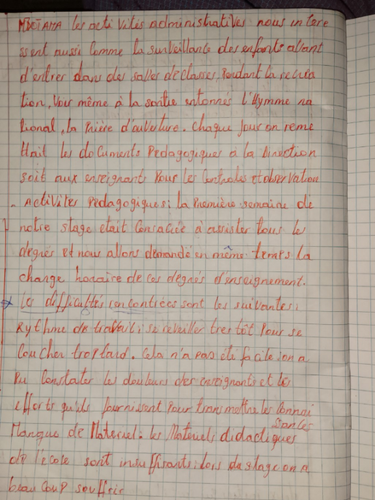 les acti vités administratives nous intére
ssent aussi comme la surveillance des enfants avant
d'entrer dans des salles de classes, Pendant la recréa
tion, Voir même à la sortie entonnés l'Hymme na
tional, la Prière d'ouverture. Chaque Jour on reme
ttait les documents Pedagogiques a la Direction
soit aux enseignants Pour les Controles et observation
- Activites Pedagogiques: la Premiere semaine de
notre stage était Consacrée à assister tous les
degrés et nous allons demandé en même temps la
charge horaire de ces degrés d'enseignement.
les difficultés rencontrées sont les suivantes:
Rythme de travail: se réveiller tres tôt Pour se
coucher trop tard. Cela n'a pas été facile on a
Pu Constater les douleurs des enseignants et les
efforts qu'ils fournissent Pour transmettre les Connai
ssances
Manque de Materiel: les Materiels didactiques
de l'école sont insuffisants: lors du stage on a
beau coup souffrir